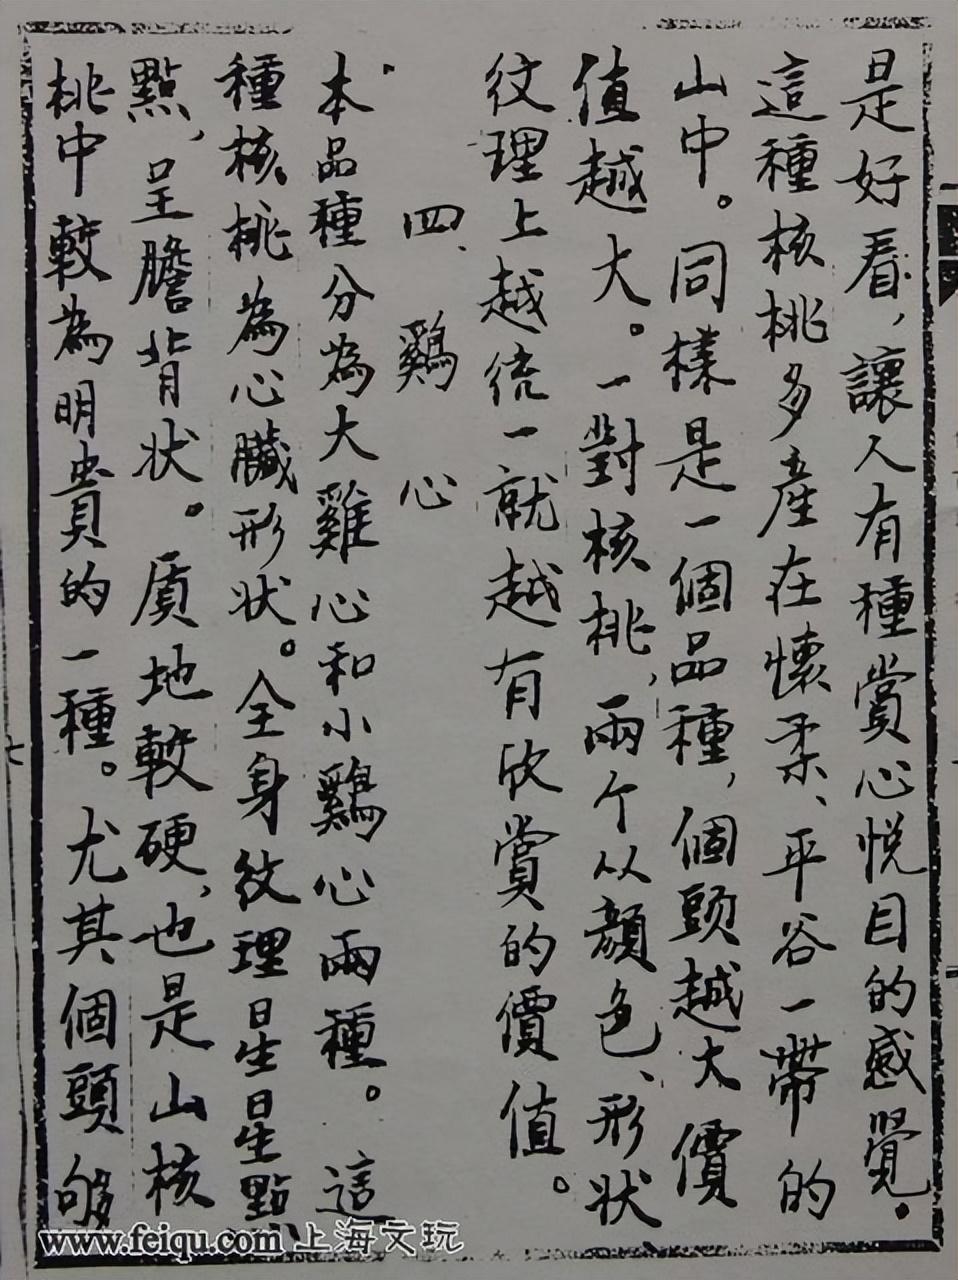 是好看,讓人有種賞心悦目的感覺。
這種核桃多產在懷柔、平谷一帶的
山中。同樣是一個品種,個頭越大價
值越大。一對核桃,兩个从顏色、形状
紋理上越统一就越有欣賞的價值。
四、鷄心
本品種分為大雞心和小鷄心兩種。這
種核桃為心臟形状。全身紋理星星點
點,呈膽背状。质地較硬,也是山核
桃中較為明贵的一種。尤其個頭够
七
www.feiqu.com 上海文玩